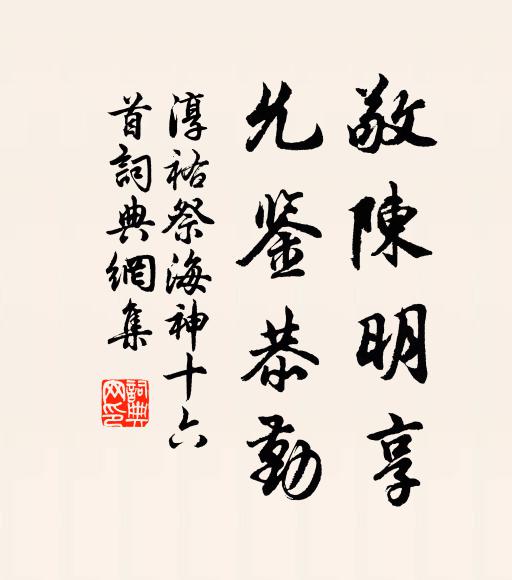 敬陳明享
允鉴恭勤
淳祐祭海神十六
首詞典網集
詞典
网印